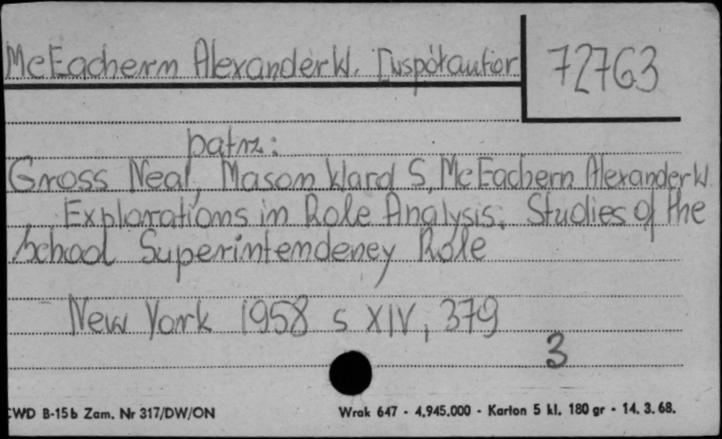 McEachern Alexander W. [współautor
72763
patrz:
Gross Neal, Mason Ward S, McEachern Alexander W
Explorations in Role Analysis. Studies of the
School Superintendency Role
New York 1958 s XIV, 379
3
CWD B-15b Zam. Nr 317/DW/ON Wrak 647 - 4.945.000 - Karton 5 kl. 180 gr - 14. 3. 68.